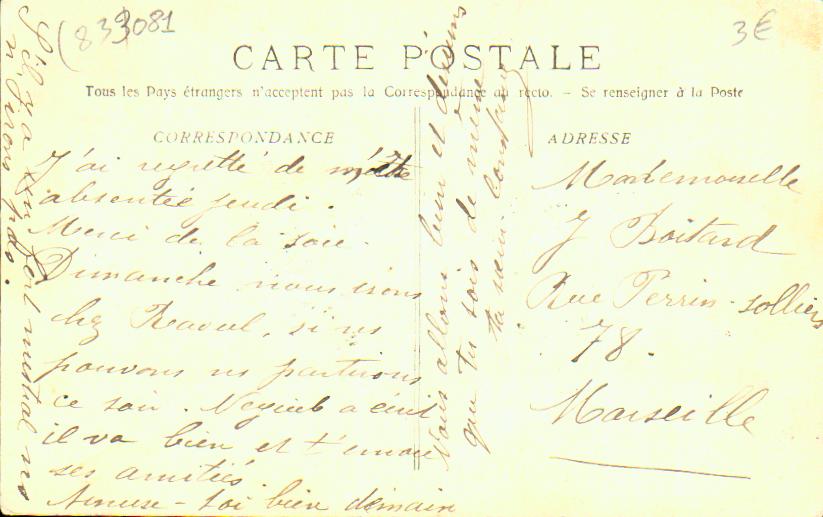 (833081
3€
CARTE POSTALE
Tous les Pays étrangers n'acceptent pas la Correspondance au recto. - Se renseigner à la Poste
CORRESPONDANCE
J'ai regretté de m'être
absentée jeudi.
Merci de la soie.
Dimanche nous irons
chez Raoul, si ns
pouvons ns partirons
ce soir. a écrit
il va bien et t'envoie
ses amitiés.
Amuse-toi bien demain
S'il y a un fort mistral ns
n'irons pas.
Nous allons bien et désirons
que tu sois de même
ta sœur
ADRESSE
Mademoiselle
J Boitard
Rue Perrin-solliers
78.
Marseille